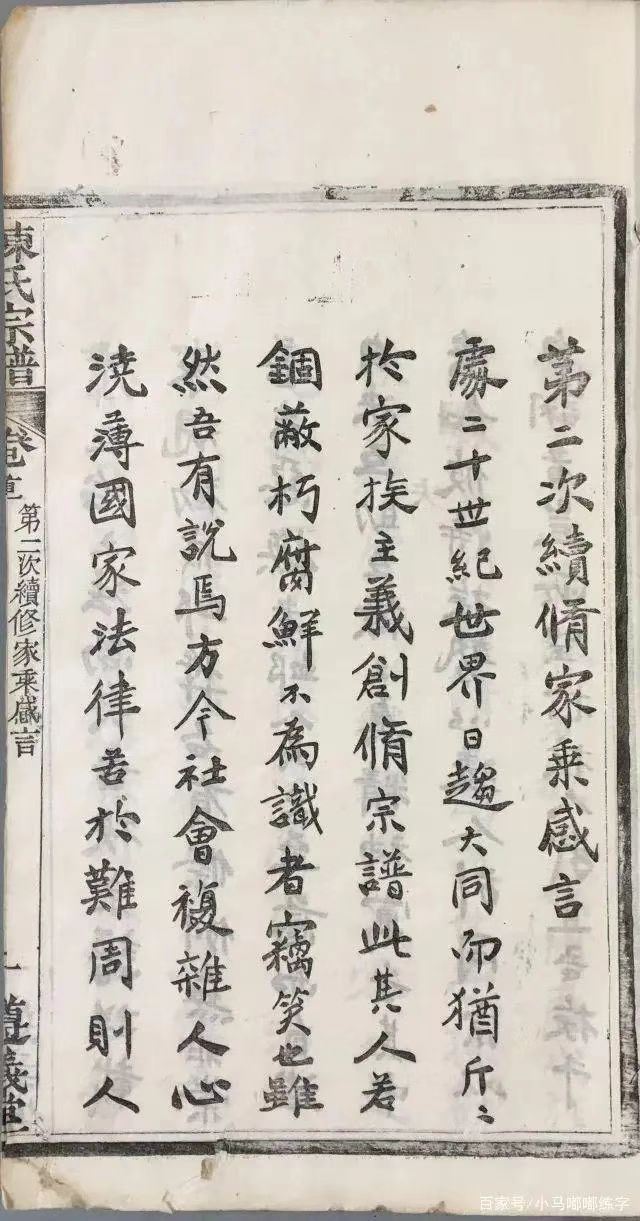 第二次續脩家乗感言
處二十世紀世界日趨大同而猶斤〻
於家族主義創脩宗譜此其人若
錮蔽朽腐鮮不為識者竊笑也雖
然吾有說焉方今社會複雜人心
澆薄國家法律苦於難周則人
陳氏宗譜
卷首
第二次續修家乘感言
一
遵義堂
百家号/小马嘟嘟练字